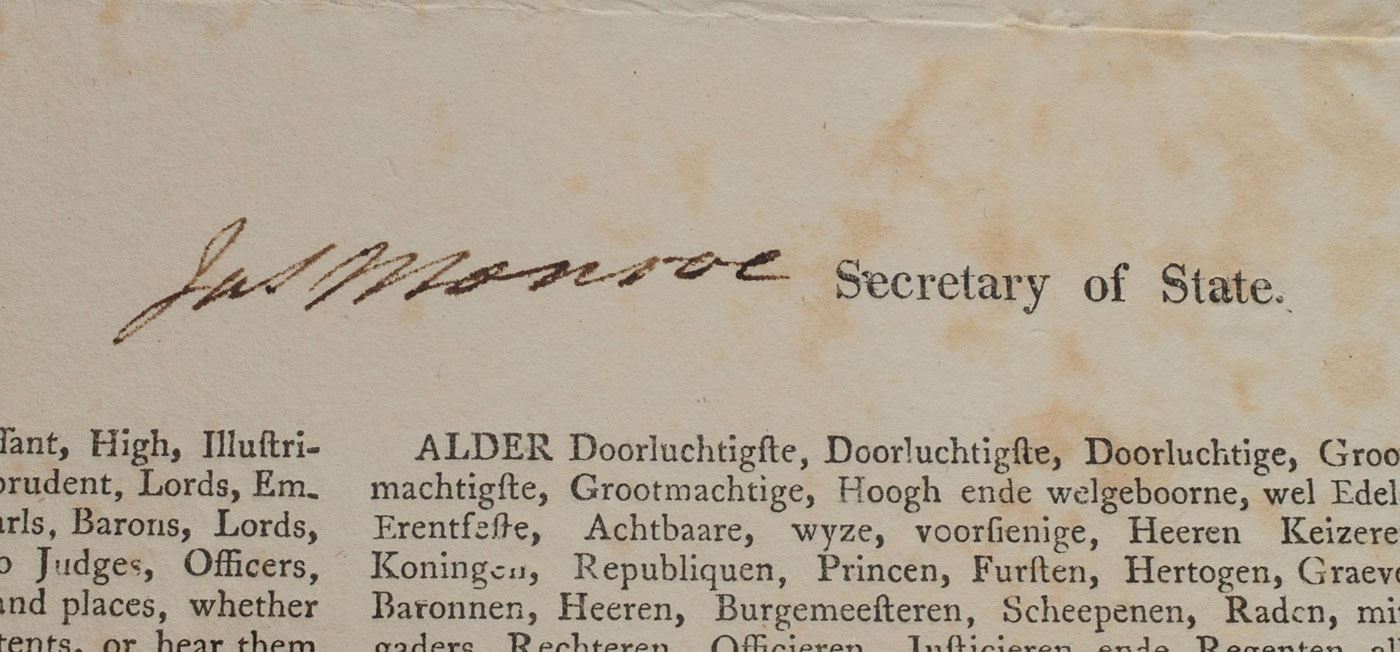 Jas Monroe Secretary of State.
ſant, High, Illuſtri-
prudent, Lords, Em-
arls, Barons, Lords,
o Judges, Officers,
and places, whether
tents, or hear them
ALDER Doorluchtigſte, Doorluchtigſte, Doorluchtige, Groo
machtigſte, Grootmachtige, Hoogh ende welgeboorne, wel Edel
Erentfeſte, Achtbaare, wyze, voorſienige, Heeren Keizere
Koningen, Republiquen, Princen, Furſten, Hertogen, Graeve
Baronnen, Heeren, Burgemeeſteren, Scheepenen, Raden, mi
gaders Rechteren, Officieren, Juſticieren ende Regenten al